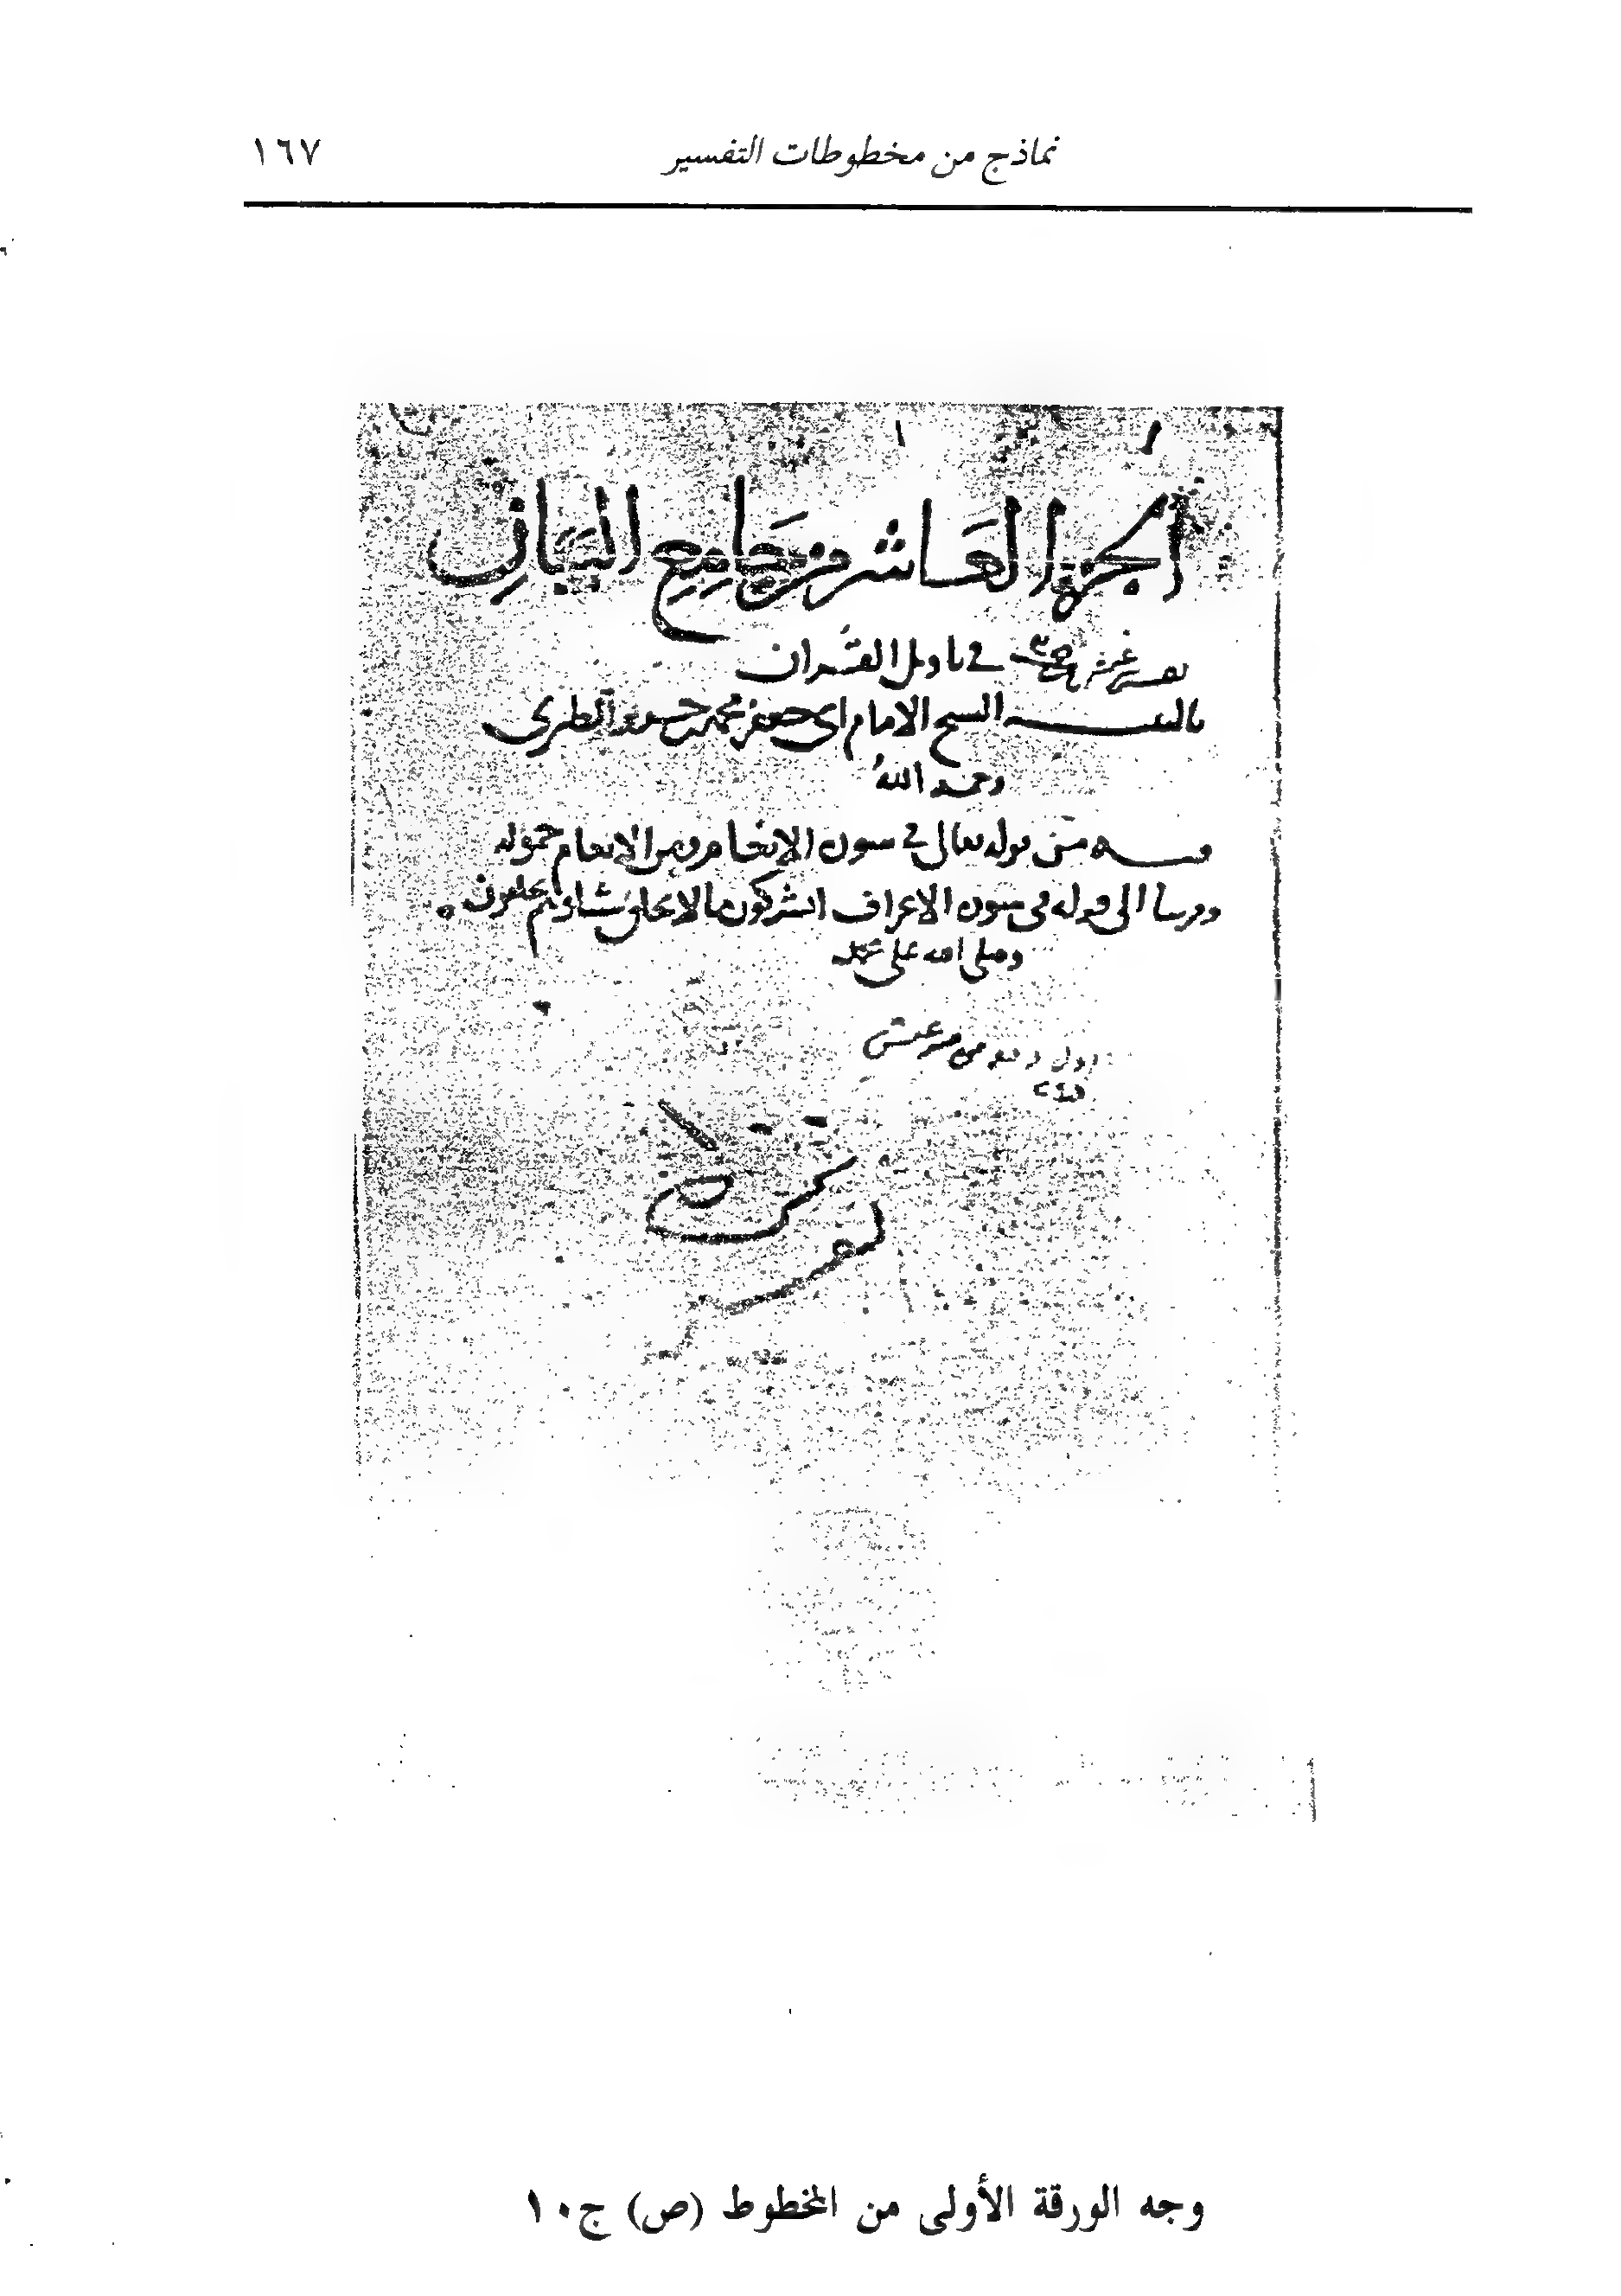 نماذج من مخطوطات التفسير ١٦٧
الجزء العاشر من جامع البيان
في تاويل القران
تاليف الشيخ الامام ابي جعفر محمد بن جرير الطبري
رحمه الله
وفيه من قوله تعالى في سورة الانعام ومن الانعام حمولة
وفرشا الى قوله في سورة الاعراف ايشركون ما لا يخلق شيئا وهم يخلقون
وصلى الله على محمد
وجه الورقة الأولى من المخطوط (ص) ج١٠